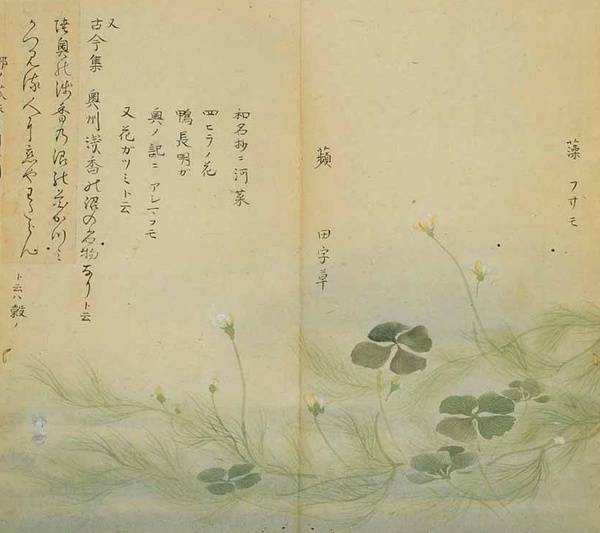 藻 フサモ
蘋 田字草
和名抄ニ河菜
四ヒラノ花
鴨長明ガ
奥ノ記ニ アシマコモ
又花ガツミト云
又
古今集 奥州浅香の沼の名物なりト云
陸奥の浅香の沼の花かつみ
かつみる人に恋やわたらん
ト云ハ穀ノ